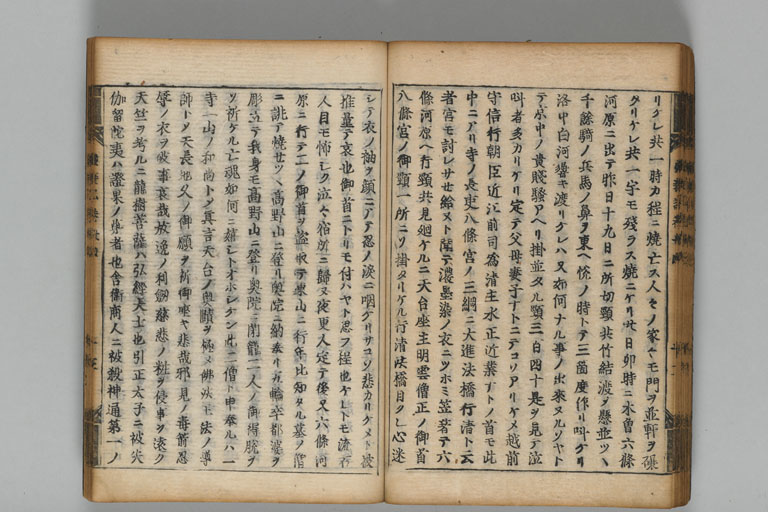 リケレ共一時カ程ニ燒亡ス人々ノ家々モ門ヲ並軒ヲ碾
タリケレ共一宇モ殘ラス燒ニケリ此日卯時ニ木曽六條
河原ニ出テ昨日十九日ニ所切頸共竹結渡ヲ懸並ツヽ
千餘騎ノ兵馬ノ鼻ヲ東ヘ 時トテ三箇度作リ叫ケリ
洛中白河響キ渡リケレハ又如何ナル事ノ出來ヌルソヤト
テ京中ノ貴賤騒アヘリ掛並タル頸三百四十是ヲ見テ泣
叫者多カリケリ定テ父母妻子ナトニテコソアリケメ越前
守信行朝臣近江前司爲清主水正近業ナトノ首モ此
中ニアリ寺ノ長吏八條宮ノ三綱ニ大進法橋行清ト云
者宮モ討レサセ給ヌト聞テ濃墨染ノ衣ニツホミ笠著テ六
條河原ヘ行頸共見廻ケルニ天台座主明雲僧正ノ御首
八條宮ノ御頸一所ニソ掛タリケル行清法橋目クレ心迷
シテ衣ノ袖ヲ顔ニアテ忍ノ涙ニ咽ケリサコソ悲カリケメト被
推量テ哀也御首ニトリモ付ハヤト思フ程也ケレトモ流石
人目モ怖シク泣々宿所ニ歸ヌ夜更人定テ後又六條河
原ニ行テ二ノ御首ヲ盗取テ東山ニ行年比知タル墓ノ僧
ニ誂テ燒セツヽ高野山ニ登リ奥院ニ納奉リ五輪卒都婆ヲ
彫立テ我身モ高野山ニ登リ奥院ニ閉籠二人ノ御得脱ヲ
ソ祈ケル亡魂如何ニ嬉シトオホシケン此二僧ト申奉ルハ一
寺一山ノ和尚トシ眞言天台ノ奥賾ヲ極メ佛法王法ノ導
師トシ天長地久ノ御願ヲ所御座ヤ悲哉邪見ノ毒箭忍
辱ノ衣ヲ被事哀哉放逸ノ利劒慈悲ノ粧ヲ侵事ヲ遠ク
天竺ヲ考ルニ龍樹菩薩ハ弘經大士也引正太子ニ被失
伽留陀夷ハ證果ノ聖者也舎衞商人ニ被殺神通第一ノ